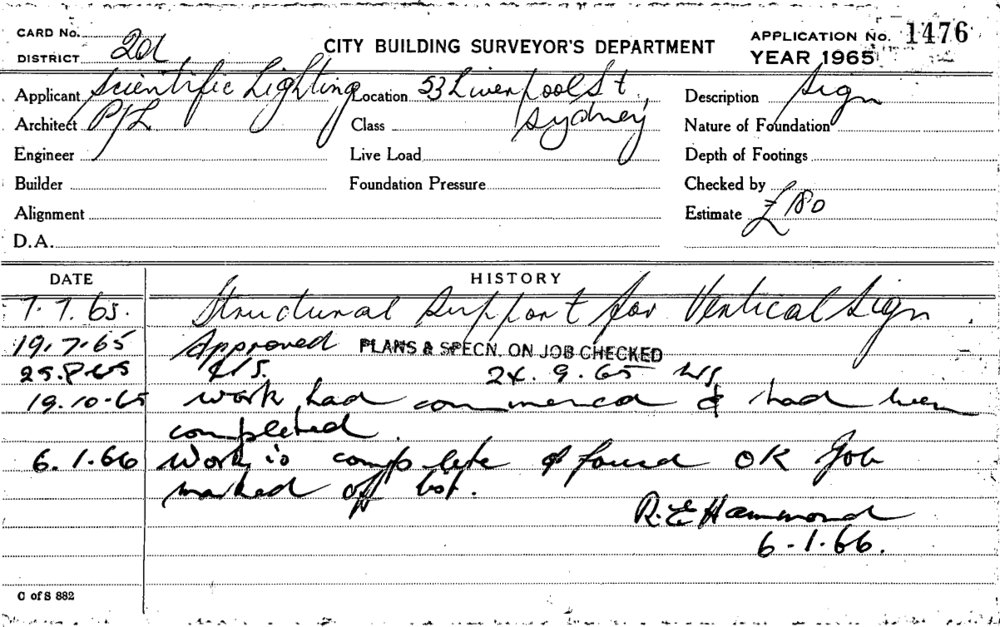 CARD No.
DISTRICT 2a
CITY BUILDING SURVEYOR'S DEPARTMENT
APPLICATION No. 1476
YEAR 1965
Applicant Scientific Lighting
Location 53 Liverpool St,
Description Sign
Architect P/L
Class Sydney
Nature of Foundation
Engineer
Live Load
Depth of Footings
Builder
Foundation Pressure
Checked by
Alignment
Estimate £180
D.A.
DATE HISTORY
7.7.65. Structural Support for Vertical Sign
19.7.65 Approved PLANS & SPECN. ON JOB CHECKED
25.8.65 24.9.65
19.10.65 work had commenced & had been
completed.
6.1.66 Work is complete & found OK Job
marked off list.
R.E Hammond
6-1.66.
C of S 882